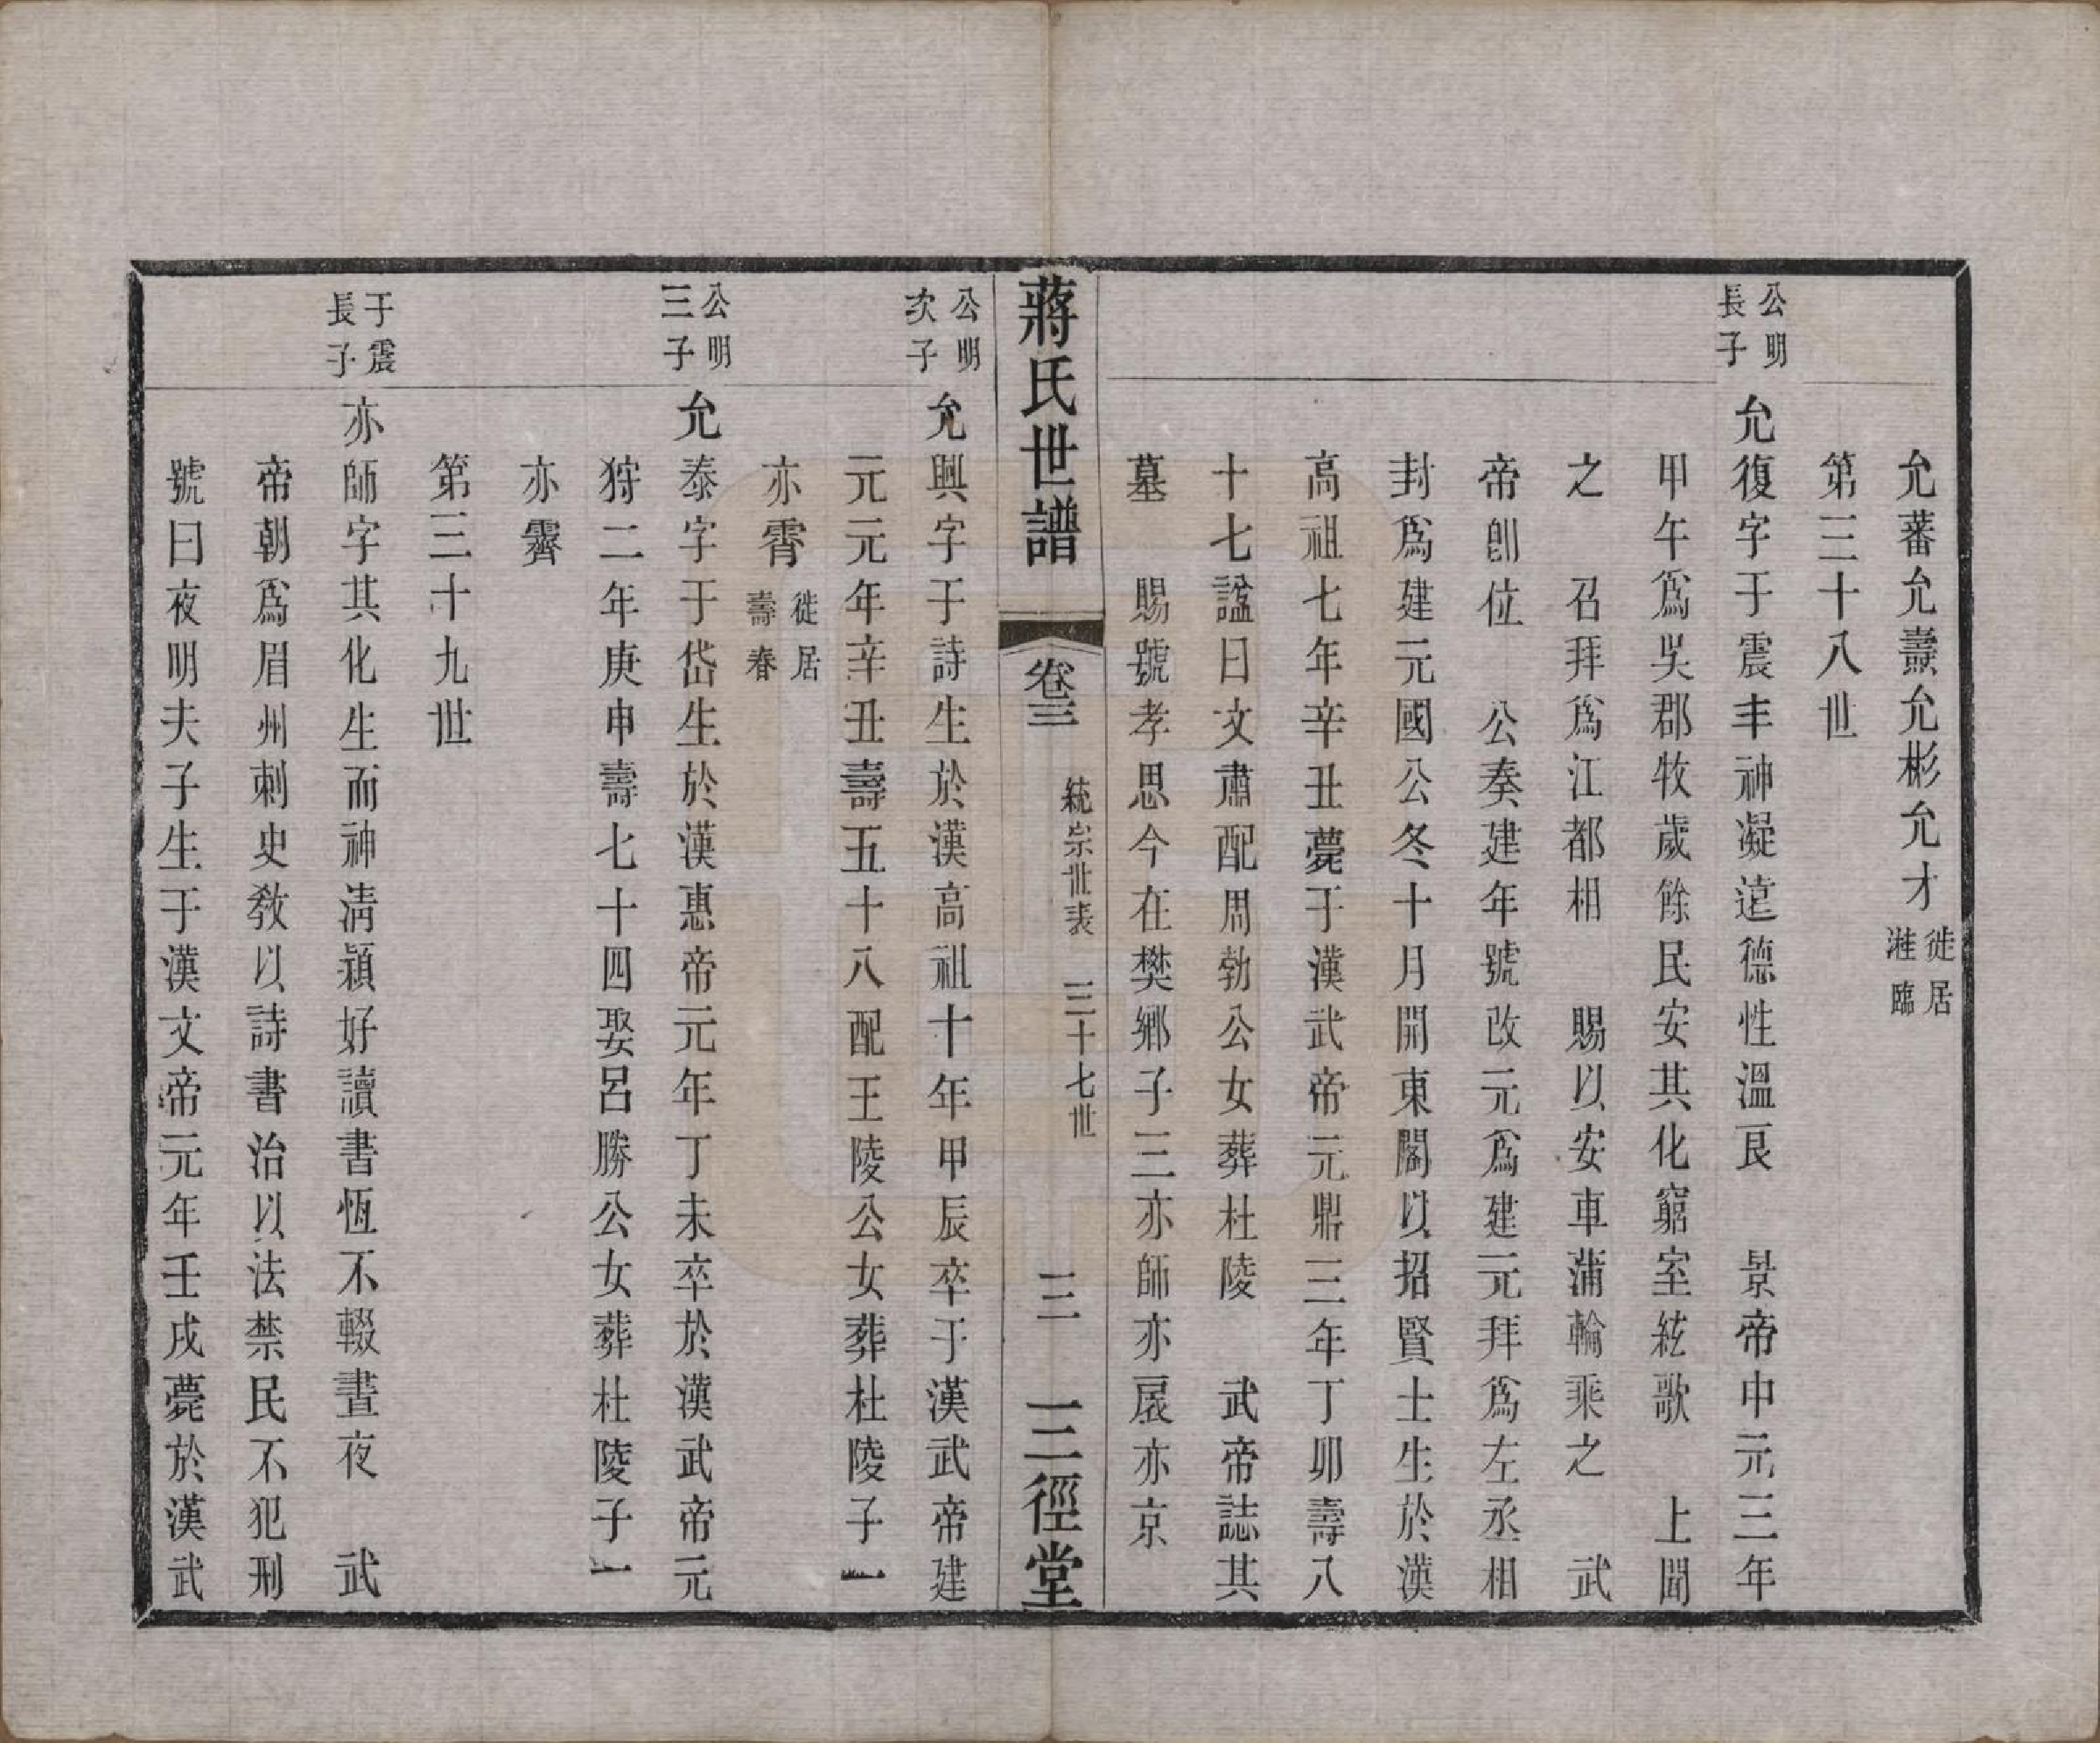 允蕃允燾允彬允才徙居潅臨
第三十八世
公明長子
允復字于震丰神凝遠德性溫良　景帝中元三年
甲午爲吳郡牧歲餘民安其化窮室絃歌　上聞
之　召拜爲江都相　賜以安車蒲輪乘之　武
帝卽位　公奏建年號改元爲建元拜爲左丞相
封爲建元國公冬十月開東閣以招賢士生於漢
高祖七年辛丑薨于漢武帝元鼎三年丁卯壽八
十七諡曰文肅配周勃公女葬杜陵　武帝誌其
墓　賜號孝思今在樊鄉子三亦師亦扆亦京
蔣氏世譜　卷三　統宗世表　三十七世　三　三徑堂
公明次子
允興字于詩生於漢高祖十年甲辰卒于漢武帝建
元元年辛丑壽五十八配王陵公女葬杜陵子一
亦霄徙居壽春
公明三子
允泰字于岱生於漢惠帝元年丁未卒於漢武帝元
狩二年庚申壽七十四娶呂勝公女葬杜陵子一
亦霽
第三十九世
于震長子
亦師字其化生而神淸穎好讀書恆不輟晝夜　武
帝朝爲眉州刺史敎以詩書治以法禁民不犯刑
號曰夜明夫子生于漢文帝元年壬戌薨於漢武